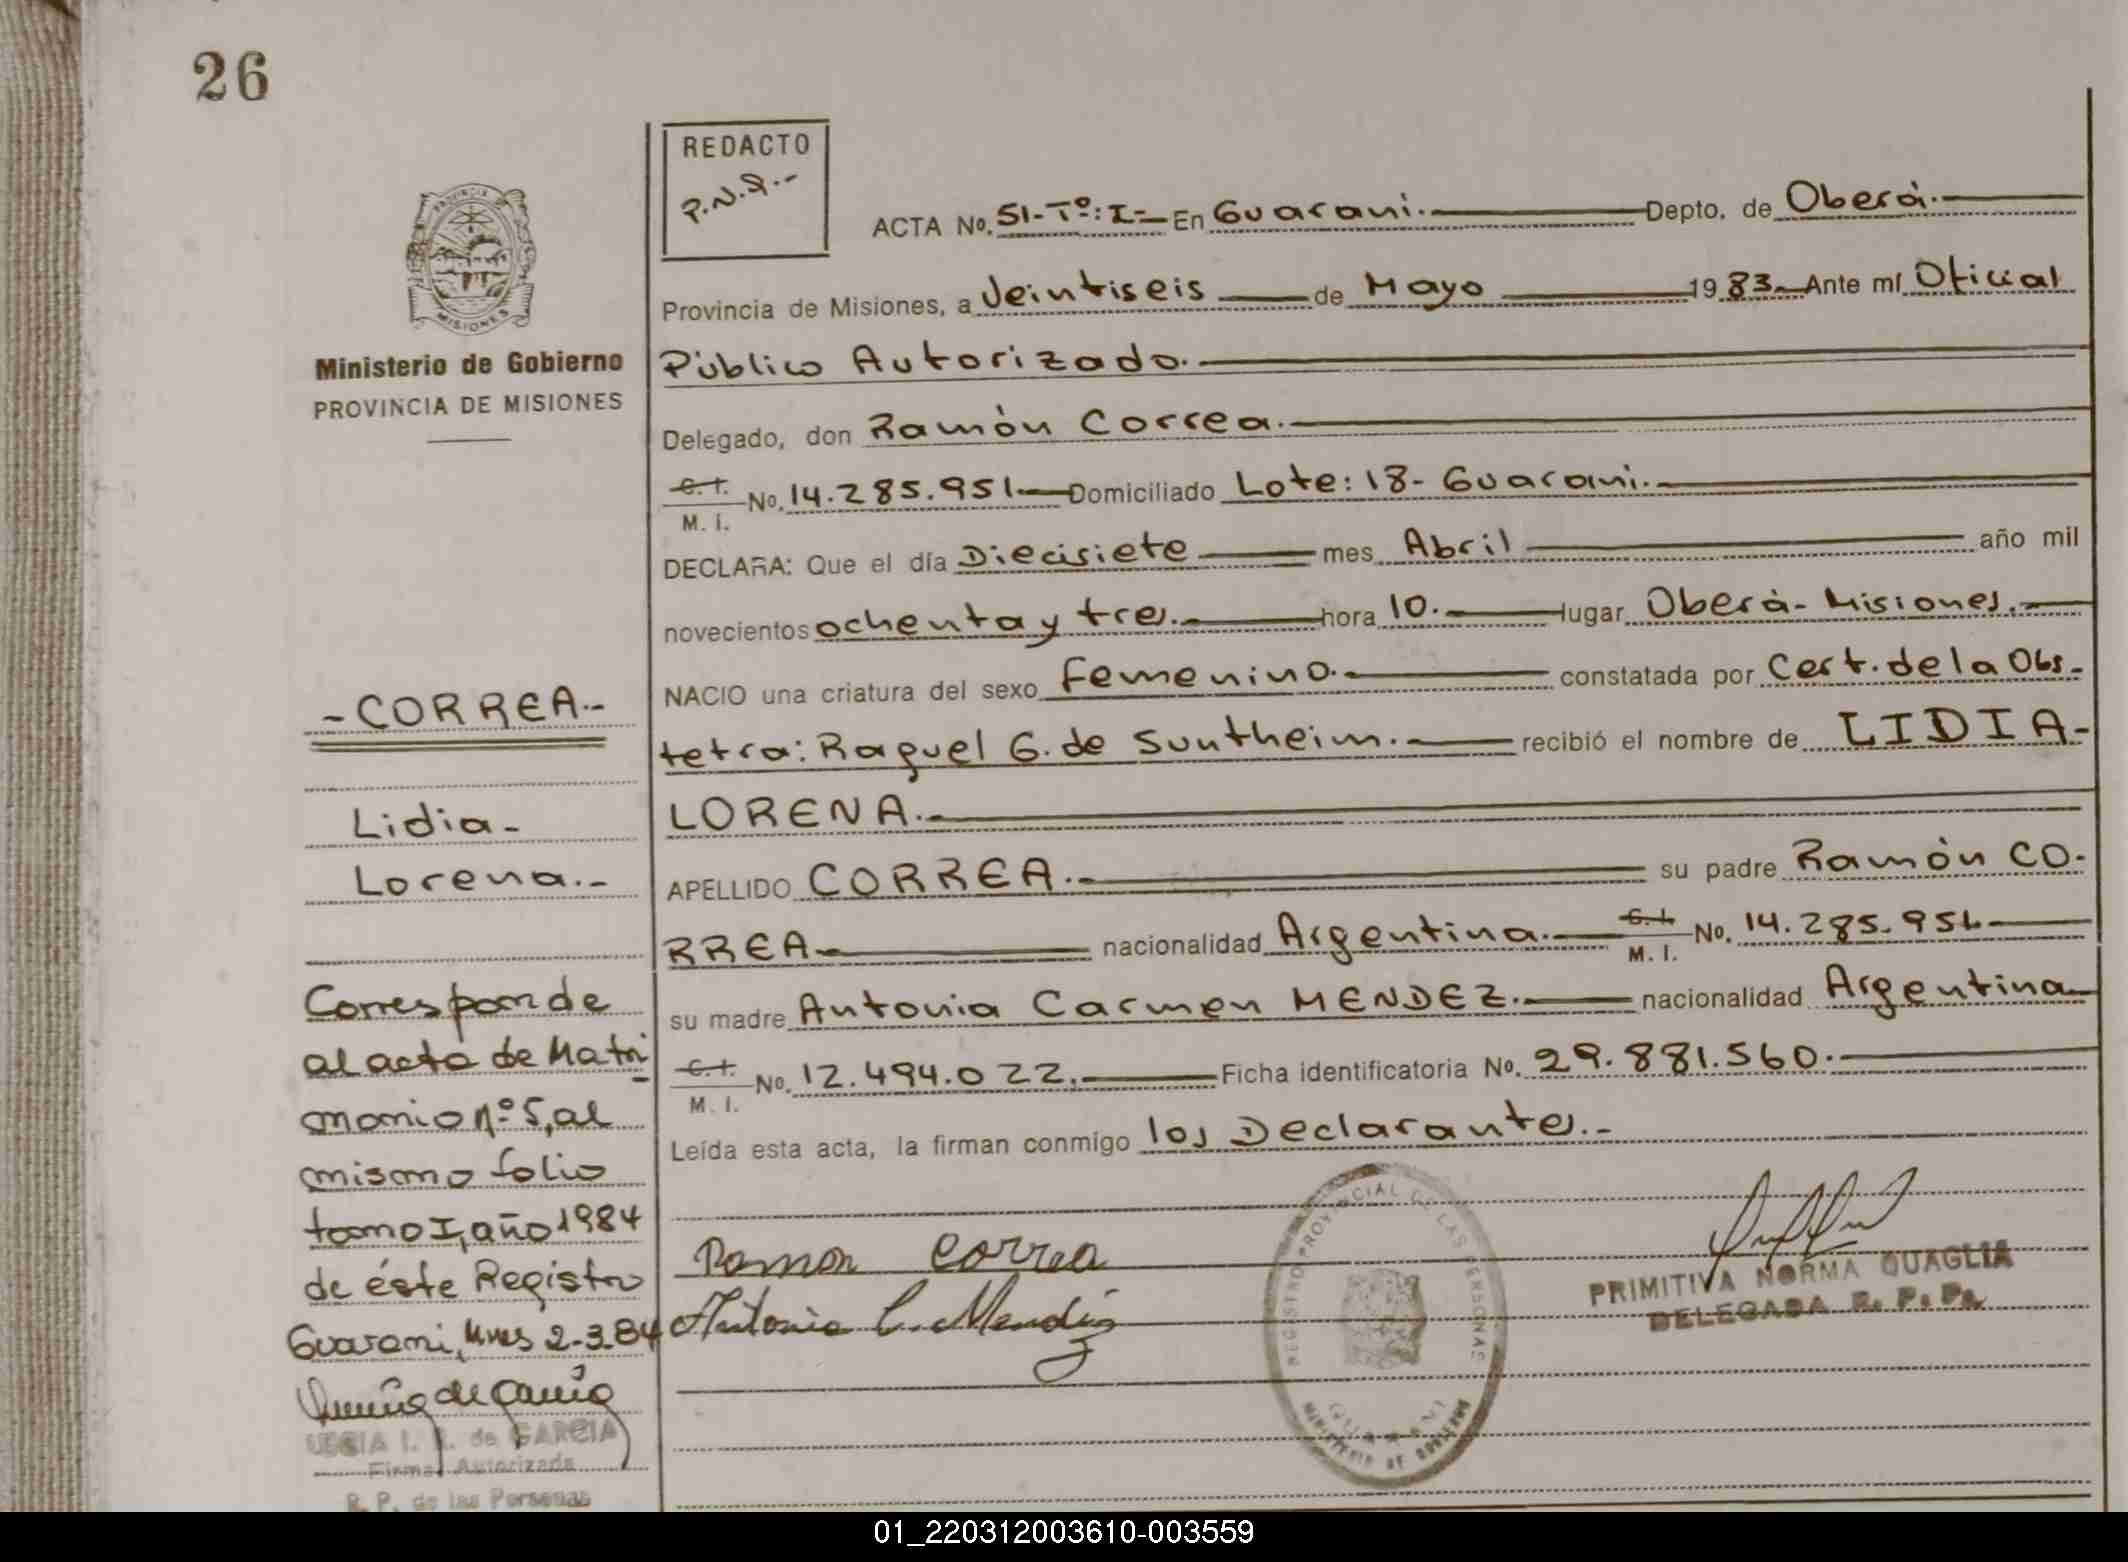 26
REDACTO
P.N.Q.-
ACTA No. 51-Tº:I- En Guarani. Depto. de Oberà.
Provincia de Misiones, a Veintiseis de Mayo 1983 Ante mí Oficial
Pùblico Autorizado.
Delegado, don Ramòn Correa.
C.I. M. I. No. 14.285.951 Domiciliado Lote: 18- Guarani.
DECLARA: Que el día Diecisiete mes Abril año mil
novecientos ochenta y tres. hora 10. lugar Oberà- Misiones.
NACIO una criatura del sexo Femenino. constatada por Cert. de la Obs-
tetra: Raquel G. de Suntheim. recibió el nombre de LIDIA-
LORENA.
APELLIDO CORREA. su padre Ramòn CO-
RREA nacionalidad Argentina. C.I. M. I. No. 14.285.951
su madre Antonia Carmen MENDEZ. nacionalidad Argentina
C.I. M. I. No. 12.494.022. Ficha identificatoria No. 29.881.560.
Leída esta acta, la firman conmigo los Declarantes.-
Ramon Correa
Antonia C. Mendez
REGISTRO PROVINCIAL DE LAS PERSONAS
GUARANI
MINISTERIO DE GOBIERNO
PRIMITIVA NORMA QUAGLIA
DELEGADA R. P. P.
PROVINCIA
MISIONES
Ministerio de Gobierno
PROVINCIA DE MISIONES
-CORREA.-
Lidia-
Lorena.-
Corresponde
al acta de Matri
monio nº 5, al
mismo folio
tomo I, año 1984
de éste Registro
Guarani, Mnes 2-3-84
I. R. de GARCIA
Firma Autorizada
R. P. de las Personas
01_220312003610-003559